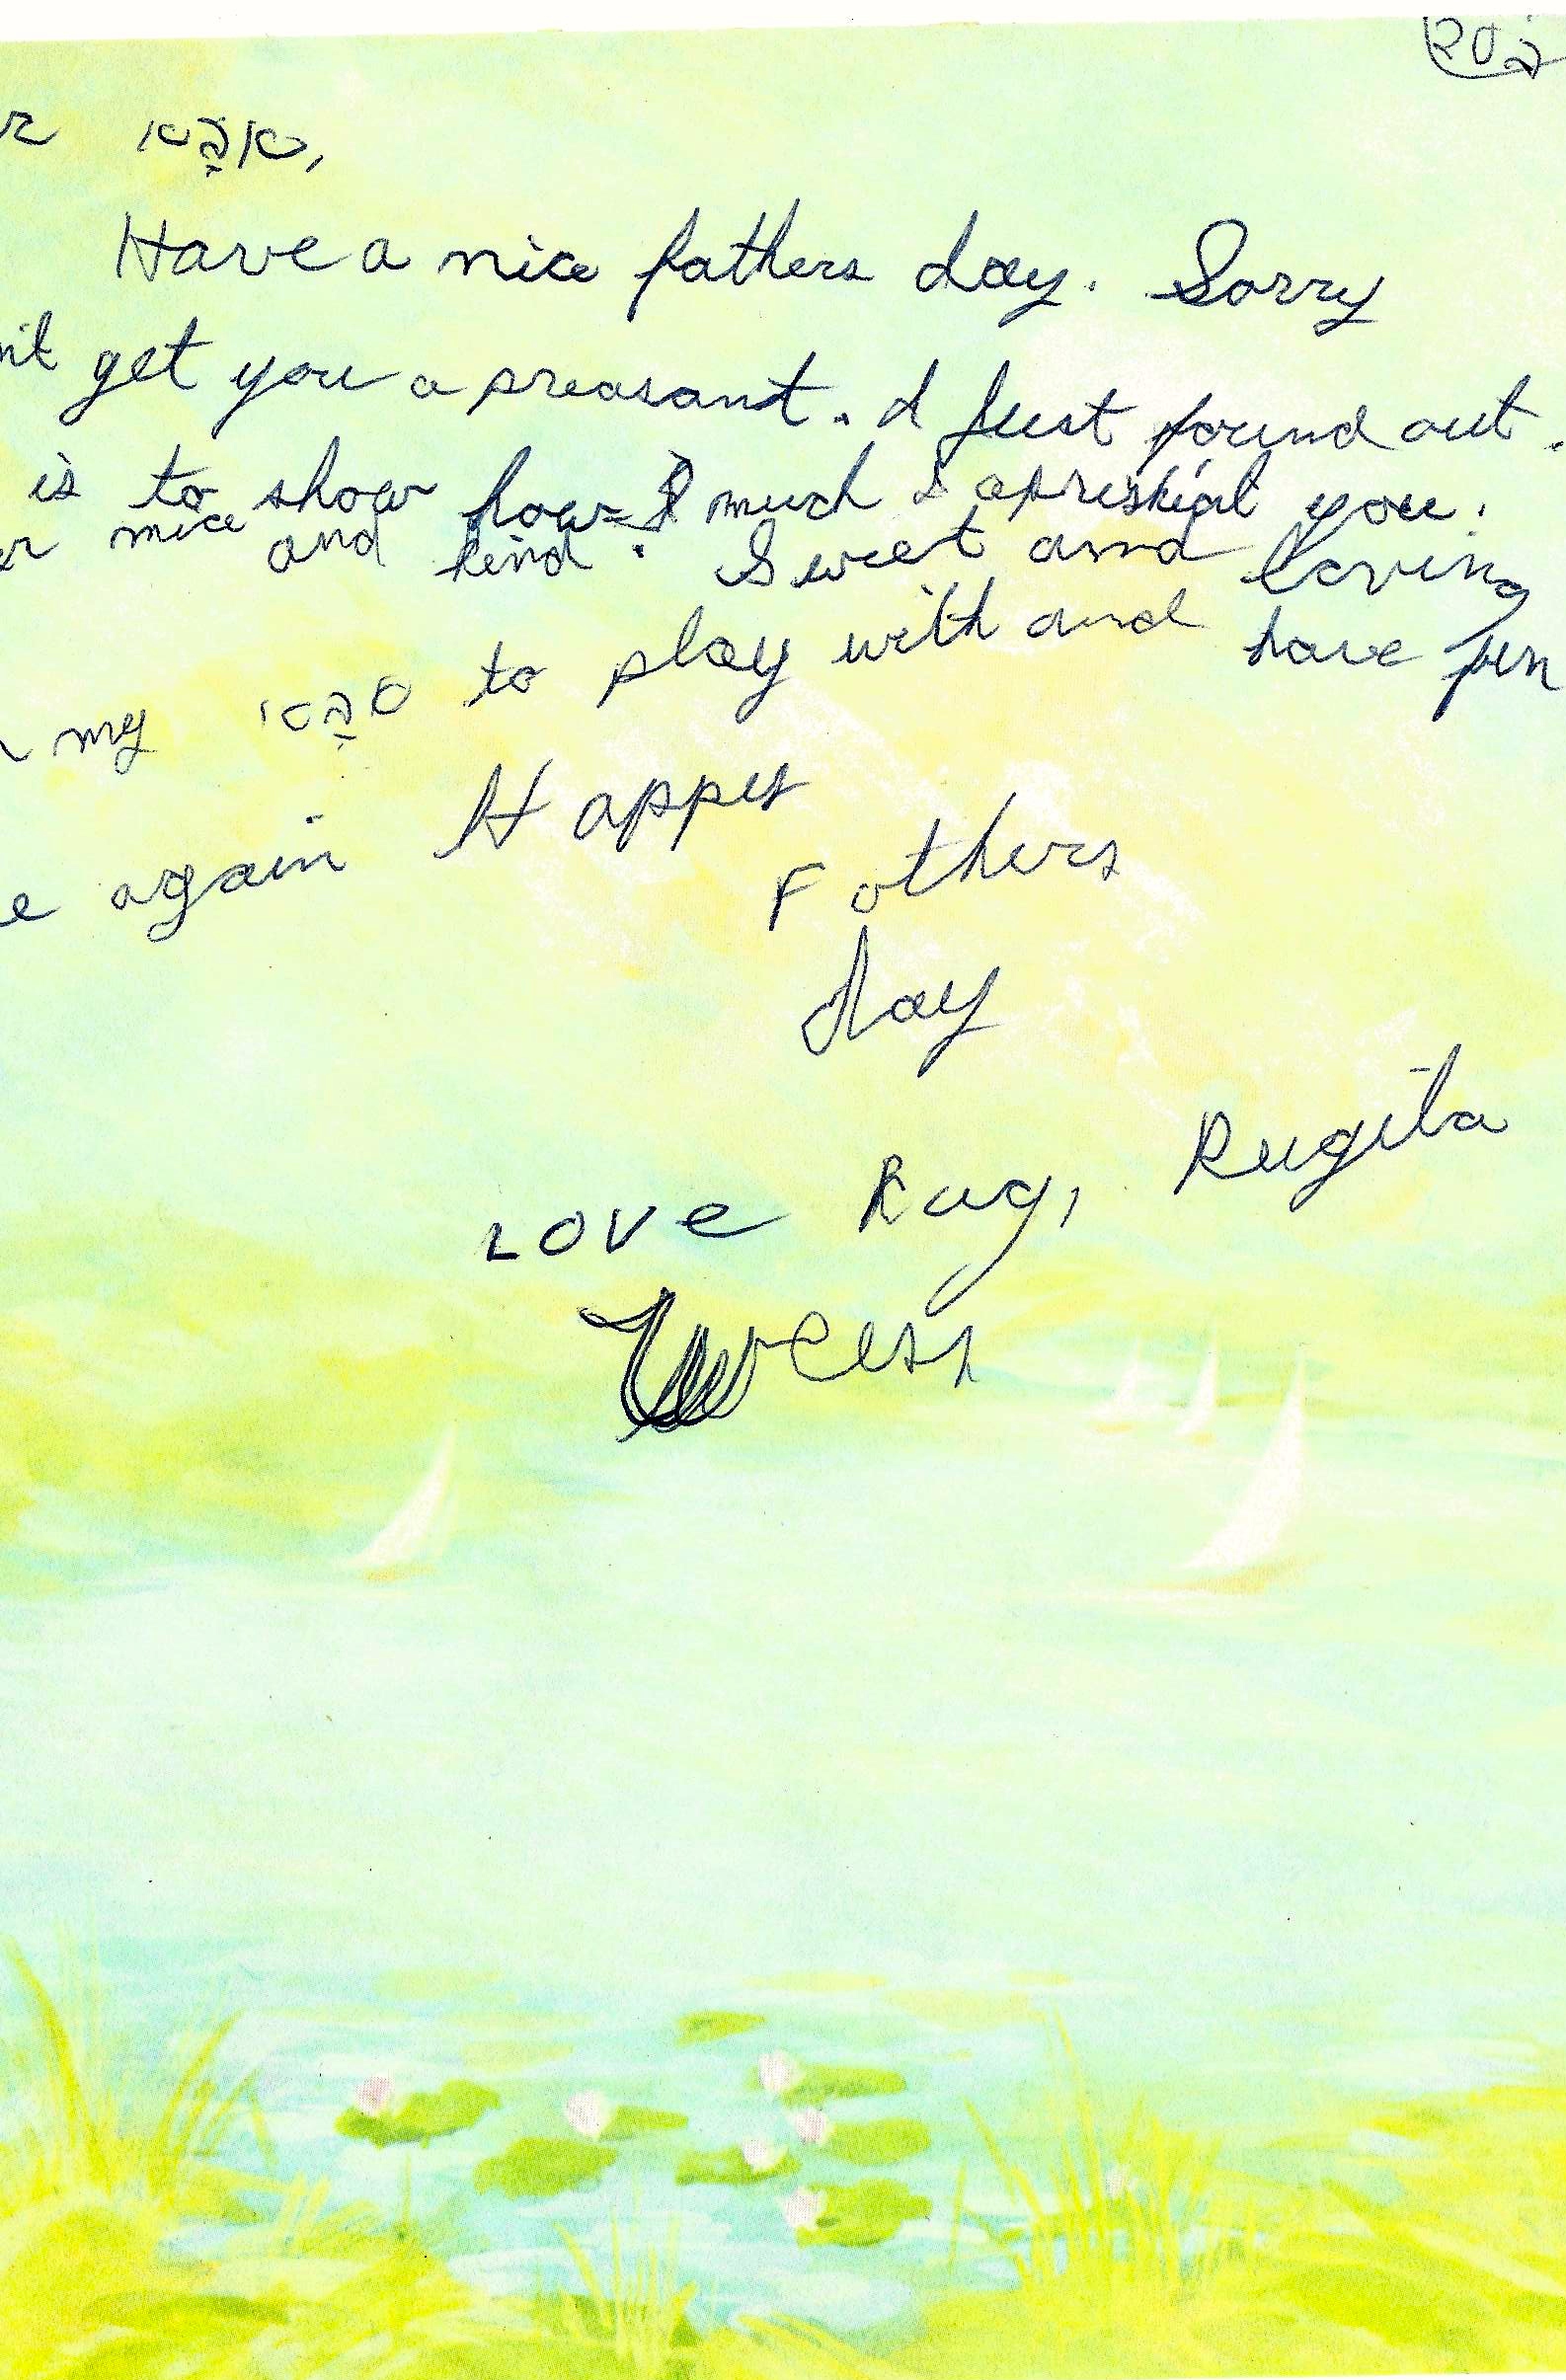 r אבָא,
Have a nice fathers day. Sorry
n't get you a preasant. I Just found out.
is to show how much I apriskiat you.
nice and kind. Sweet and loving
my אבָא to play with and have fun
e again Happy
Fathers
day
Love Rug,